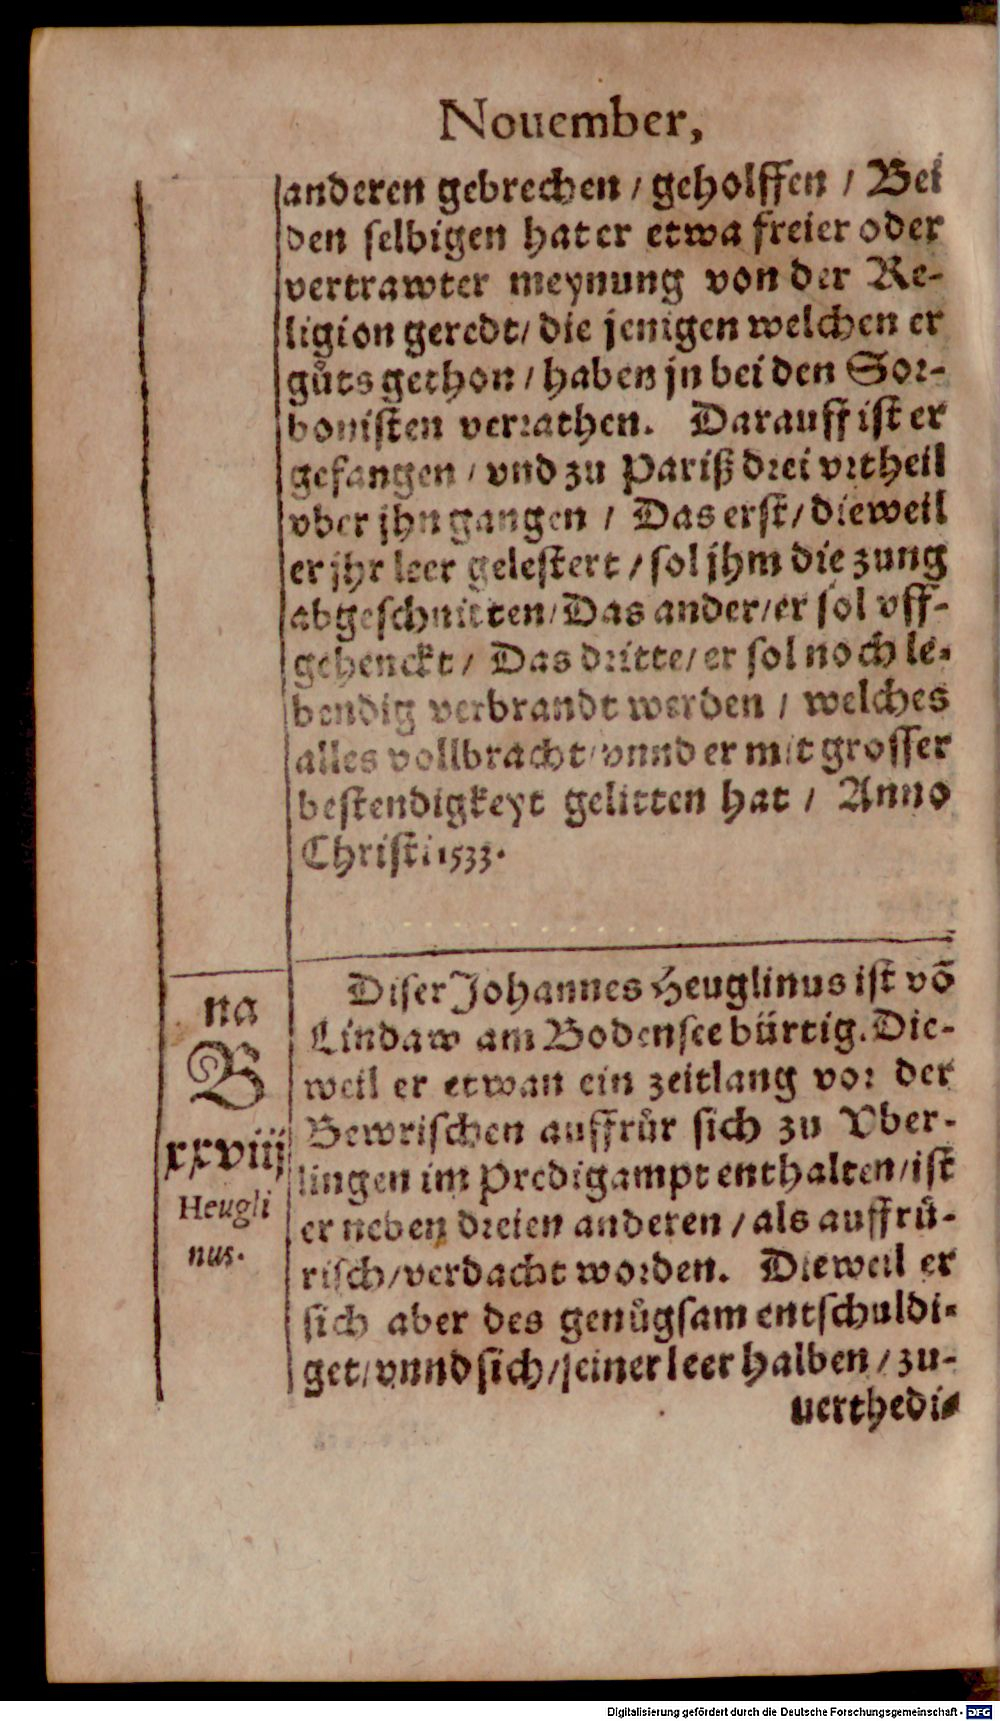 Nouember,
anderen gebrechen / geholffen / Bei
den selbigen hat er etwa freier oder
vertrawter meynung von der Re-
ligion geredt / die jenigen welchen er
gůts gethon / haben jn bei den Sor-
bonisten verrathen. Darauff ist er
gefangen / vnd zu Pariß drei vrtheil
vber jhn gangen / Das erst / dieweil
er jhr leer gelestert / sol jhm die zung
abgeschnitten / Das ander / er sol vff-
gehenckt / Das dritte / er sol noch le-
bendig verbrandt werden / welches
alles vollbracht / vnnd er mit grosser
bestendigkeyt gelitten hat / Anno
Christi 1533.
na
B
xxviij
Heugli
nus.
Diser Johannes Heuglinus ist võ
Lindaw am Bodensee bürtig. Die-
weil er etwan ein zeitlang vor der
Bewrischen auffrůr sich zu Vber-
lingen im Predigampt enthalten / ist
er neben dreien anderen / als auffrü-
risch / verdacht worden. Dieweil er
sich aber des genůgsam entschuldi-
get / vnnd sich / seiner leer halben / zu-
uerthedi-
Digitalisierung gefördert durch die Deutsche Forschungsgemeinschaft - DFG